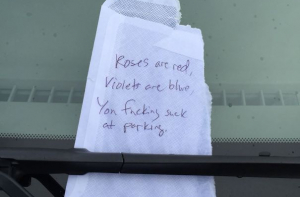 Roses are red,
Violets are blue,
You fucking suck
at parking.